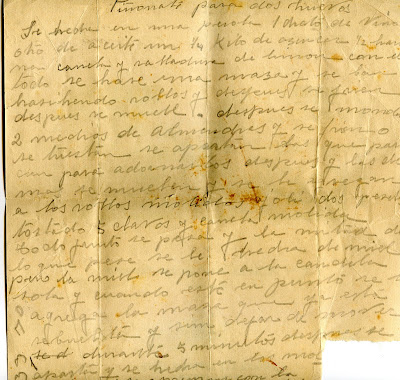 Piñonate para dos huevos
Se hecha en una perola 1 dholo de vino
otro de aceite un ¼ Kilo de azucar ½ hari
na canela y ralladura de limon con el
todo se hace una masa y se ban
haciendo rollos y despues se faran
despues se muele. despues se monda
2 medios de almendras y se frien o
se tuestan se apartan las que para
can para adornarlos despues y las de
mas se muelen y se le agregan
a los rollos molidos dos pesetas
tostado 5 clavos y canela molida
todo junto se pesa y la mitad de
lo que pese se le hecha de miel
pero la miel se pone a la candela
sola y cuando esté en punto se
agrega la masa que ya esta
rebuelta y sin dejar de mover
durante 5 minutos despues se
aparta y se hecha en la
con la